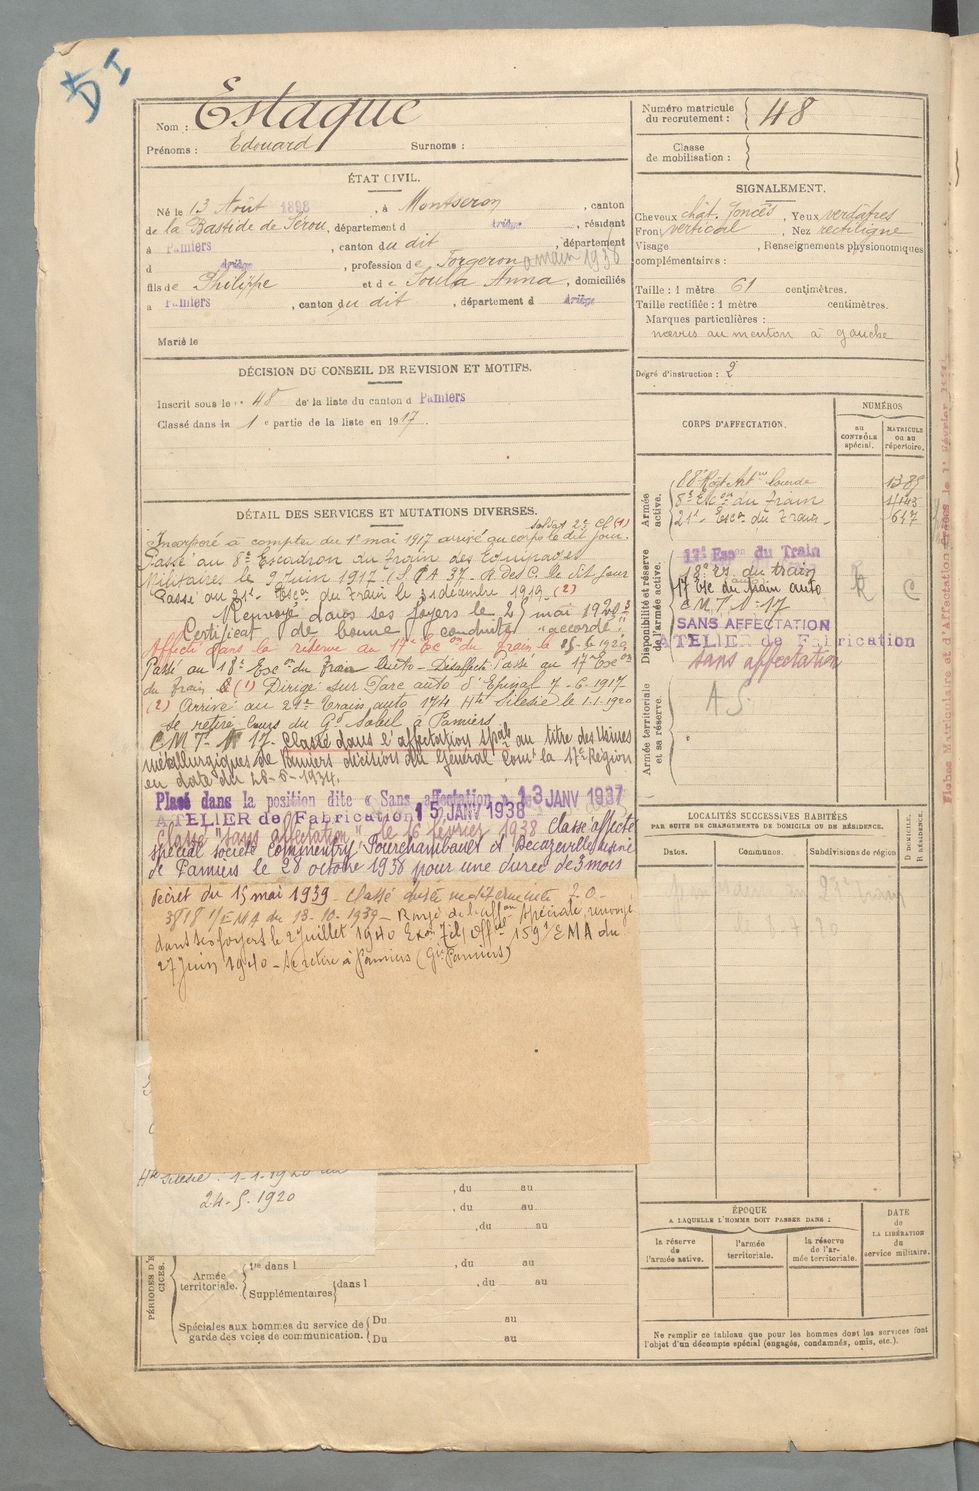 Nom : Estaque
Prénoms : Edouard Surnoms :
ÉTAT CIVIL.
Né le 13 Août 1898, à Montseron, canton
de la Bastide de Sérou, département d Ariège, résidant
à Pamiers, canton du dit, département
d Ariège, profession de Forgeron
fils de Philippe et de Soula Anna, domiciliés
à Pamiers, canton du dit, département d Ariège
Marié le
DÉCISION DU CONSEIL DE REVISION ET MOTIFS.
Inscrit sous le n° 48 de la liste du canton d Pamiers
Classé dans la 1e partie de la liste en 1917.
DÉTAIL DES SERVICES ET MUTATIONS DIVERSES.
soldat 2e Cl (1)
Incorporé à compter du 1er mai 1917 arrivé au corps le dit jour.
Passé au 8e Escadron du Train des Equipages
Militaires le 9 Juin 1917 le dit jour
Passé au 21e Escon du Train le 31 décembre 1919 (2)
Renvoyé dans ses foyers le 25 mai 1920
Certificat de bonne conduite "accordé"
Affecté dans la réserve au 17e Escon du Train le
Passé au 18e Escon du Train Auto Passé au 17e Escon
du Train (1) Dirigé sur Parc auto d'Epinal 7-6-1917
(2) Arrivé au Train auto 174 Hte Silésie le 1.1.1920
Se retire Cours du Gd Soleil à Pamiers
CMT N° 17 Classé dans l'affectation spale au titre des Usines
métallurgiques de Pamiers décision du Général Comt la 17e Région
en date du 28-6-1934.
Placé dans la position dite « Sans affectation » 13 JANV 1937
ATELIER de Fabrication 15 JANV 1938
Classé "sans affectation" le 16 février 1938 Classé affecté
spécial société Commentry Fourchambault et Decazeville Usine
de Pamiers le 28 octobre 1938 pour une durée de 3 mois
décret du 15 mai 1939 - Classé durée indéterminée
3818 1/EMA du 13-10-1939 - Rayé de l'affon spéciale renvoyé
dans ses foyers le 2 Juillet 1940 159 1/EMA du
27 Juin 1940 - Se retire à Pamiers
Hte Silésie : 1-1-1920 au
24-5-1920
, du au
, du au
, du au
PÉRIODES D'EXERCICES.
Armée territoriale.
1re dans l , du au
Supplémentaires dans l , du au
Spéciales aux hommes du service de garde des voies de communication.
Du au
Du au
Numéro matricule du recrutement : 48
Classe de mobilisation :
SIGNALEMENT.
Cheveux chât. foncés, Yeux verdâtres
Front vertical, Nez rectiligne
Visage , Renseignements physionomiques
complémentaires :
Taille : 1 mètre 61 centimètres.
Taille rectifiée : 1 mètre centimètres.
Marques particulières :
nævus au menton à gauche
Degré d'instruction : 2
CORPS D'AFFECTATION.
NUMÉROS
au CONTRÔLE spécial.
MATRICULE ou au répertoire.
Armée active.
88e Régt Artie lourde
8e Escon du Train
21e Escon du Train 647
Disponibilité et réserve de l'armée active.
17e Escon du Train
18e Es du train
17 Esc du train auto
CMT N° 17
SANS AFFECTATION
ATELIER de Fabrication
sans affectation
R C
Armée territoriale et sa réserve
AS
LOCALITÉS SUCCESSIVES HABITÉES
PAR SUITE DE CHANGEMENTS DE DOMICILE OU DE RÉSIDENCE.
Dates. Communes. Subdivisions de région
D DOMICILE. R RÉSIDENCE.
ÉPOQUE
A LAQUELLE L'HOMME DOIT PASSER DANS :
la réserve de l'armée active.
l'armée territoriale.
la réserve de l'armée territoriale.
DATE de LA LIBÉRATION du service militaire.
Ne remplir ce tableau que pour les hommes dont les services font
l'objet d'un décompte spécial (engagés, condamnés, omis, etc.).